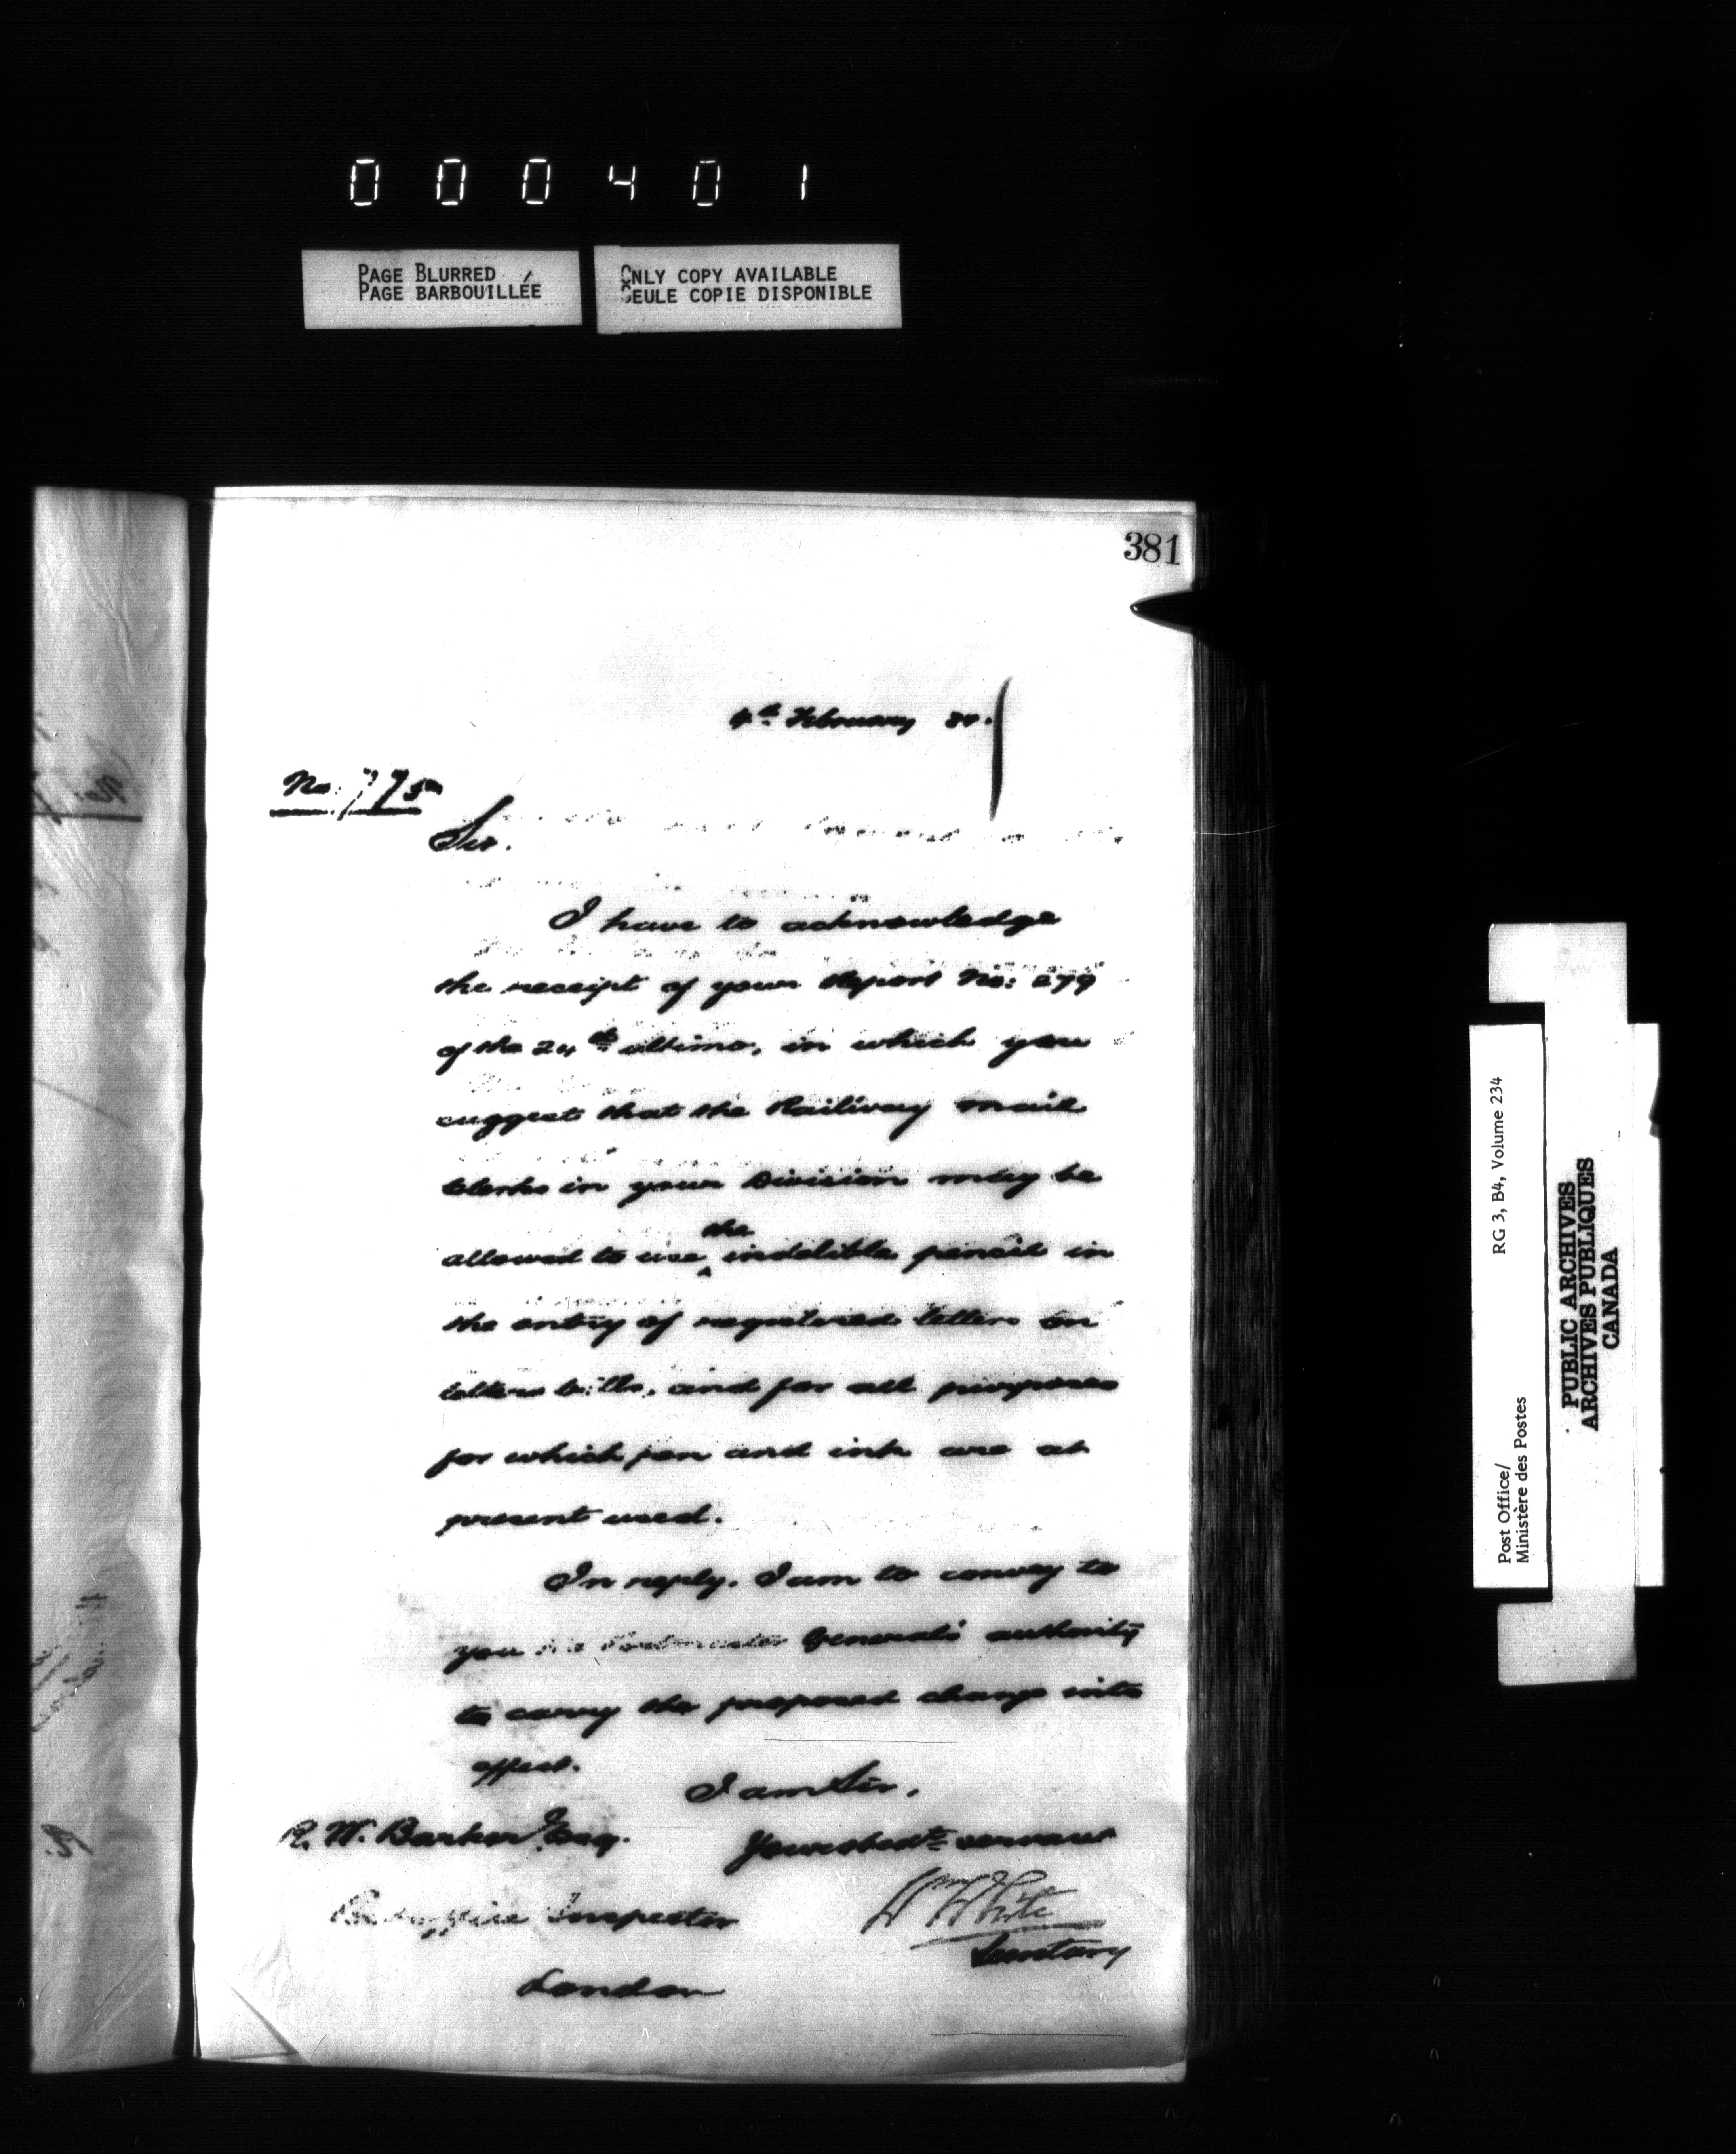 000401
PAGE BLURRED
PAGE BARBOUILLÉE
ONLY COPY AVAILABLE
SEULE COPIE DISPONIBLE
381
4th February
No: 775
Sir.
I have to acknowledge
the receipt of your Report No: 279
of the 24th ultimo, in which you
suggest that the Railway mail
Clerks in your Division may be
allowed to use the indelible pencil in
the entry of registered letters on
letter bills, and for all purposes
for which pen and ink are at
present used.
In reply. I am to convey to
you the Postmaster General's authority
to carry the proposed change into
effect.
I am Sir,
R. W. Barker Esq.
Your obedt servant
Post office Inspector
Wm White
Secretary
London
RG 3, B4, Volume 234
Post Office/
Ministère des Postes
PUBLIC ARCHIVES
ARCHIVES PUBLIQUES
CANADA